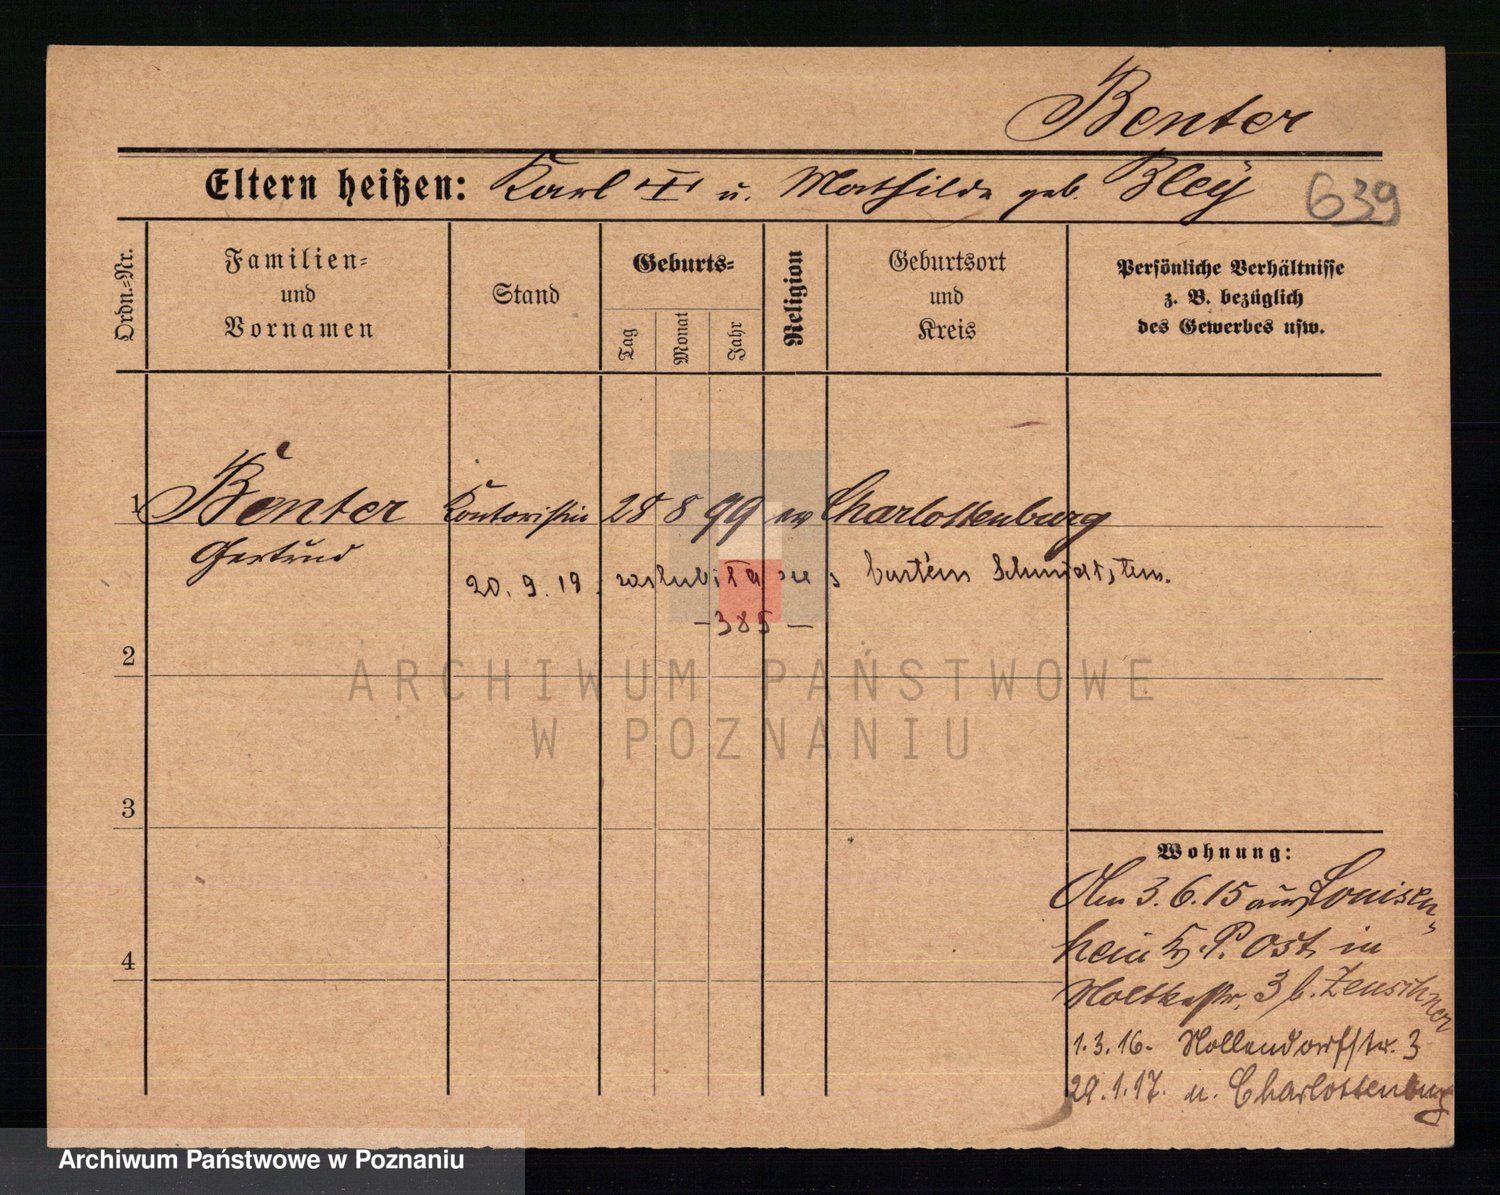 Benter
Eltern heißen: Karl u. Mathilde geb. Bley
639
Ordn.-Nr.
Familien-
und
Vornamen
Stand
Geburts-
Tag
Monat
Jahr
Religion
Geburtsort
und
Kreis
Persönliche Verhältnisse
z. B. bezüglich
des Gewerbes usw.
1 Benter Kontoristin 28 8 99 ev Charlottenburg
Gertrud
20. 9. 19. Schmidt
– 385 –
2
ARCHIWUM PAŃSTWOWE
W POZNANIU
3
4
Wohnung:
Am 3.6.15 aus Louisen-
hain P. Ost in
Moltkestr. 3 b. Zeuschner
1.3.16. Nollendorfstr. 3
29.1.17. n. Charlottenburg
Archiwum Państwowe w Poznaniu